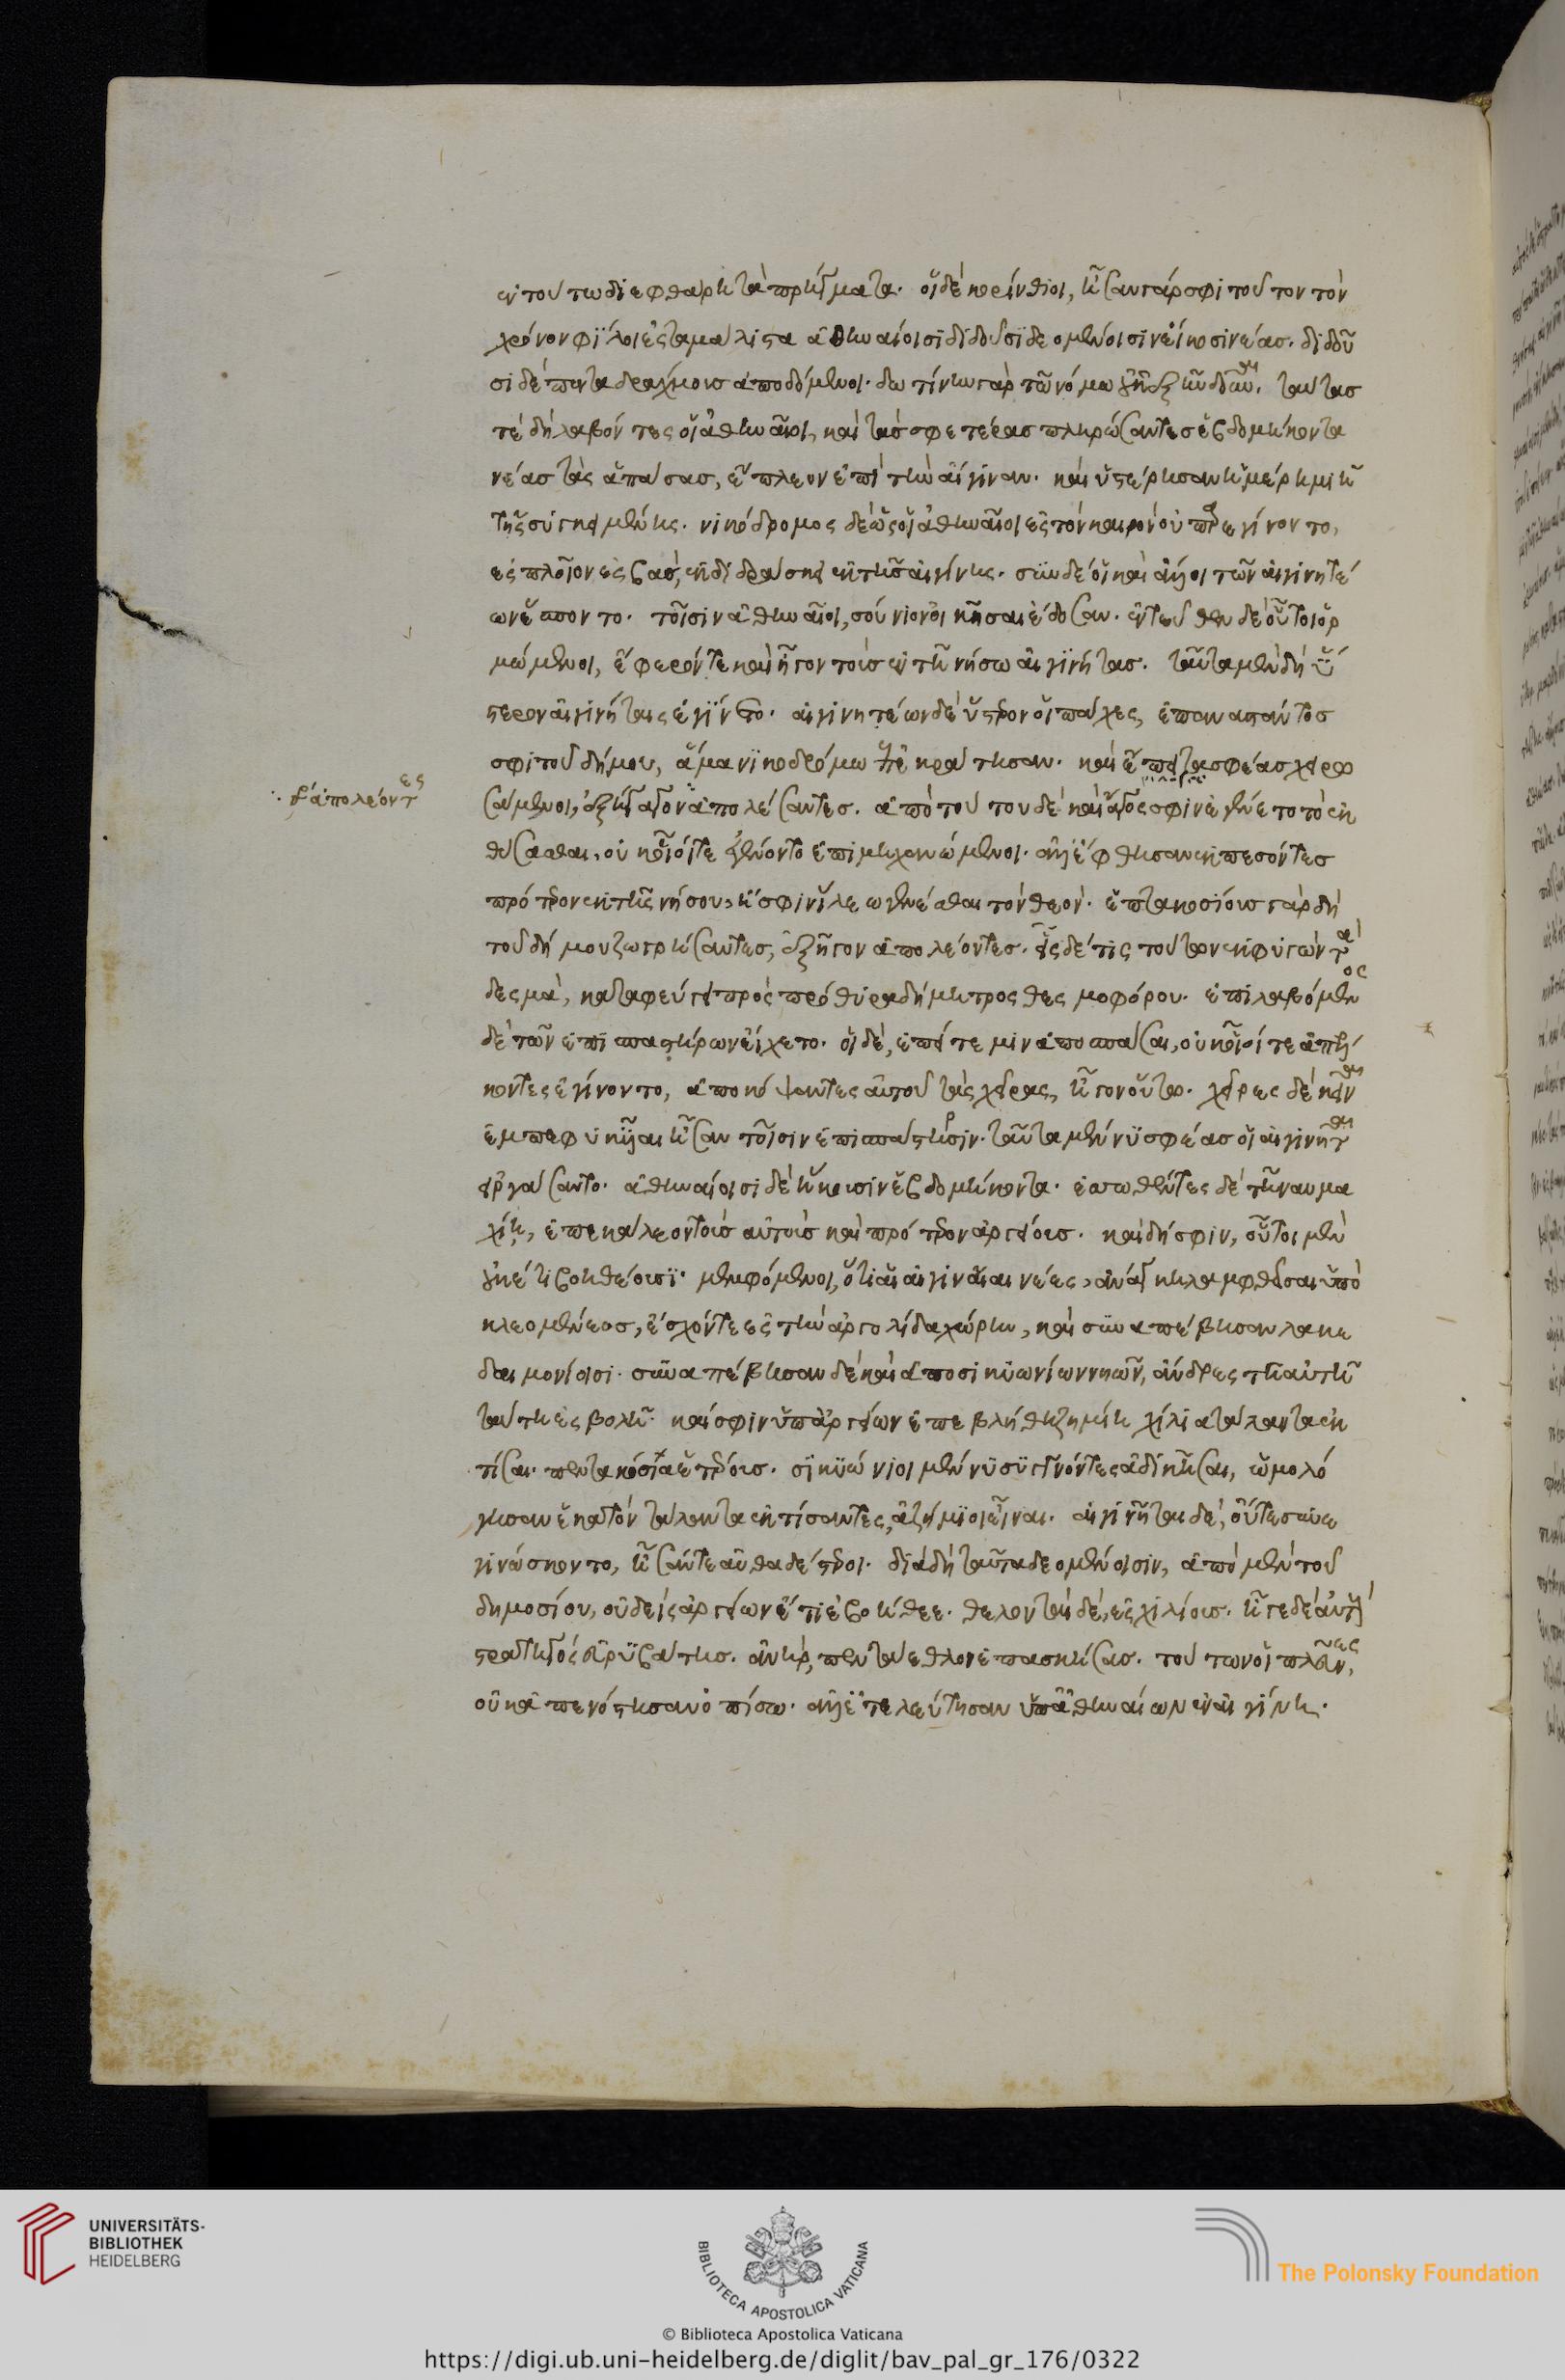 ἐν τούτω διεφθάρη τὰ πρήγματα. οἱ δὲ κορίνθιοι, ἦσαν γάρ σφι τοῦτον τὸν
χρόνον φίλοι ἐς τὰ μάλιστα ἀθηναίοισι διδοῦσι δεομένοισιν εἴκοσι νέας. διδοῦ
σι δὲ πενταδράχμους ἀποδόμενοι. δωτίνην γὰρ τῶ νόμω οὐκ ἐξῆν δοῦναι. ταύτας
τε δὴ λαβόντες οἱ ἀθηναῖοι, καὶ τὰς σφετέρας πληρώσαντες ἑβδομήκοντα
νέας τὰς ἁπάσας, ἔπλεον ἐπὶ τὴν αἴγιναν. καὶ ὑστέρησαν ἡμέρη μιῆ
τῆς συγκειμένης. νικόδρομος δὲ ὡς οἱ ἀθηναῖοι ἐς τὸν καιρὸν οὐ παρεγίνοντο,
ἐς πλοῖον ἐσβὰς, ἐκδιδράσκει ἐκ τῆς αἰγίνης. σὺν δὲ οἱ καὶ ἄλλοι τῶν αἰγινητέ
ων ἕποντο. τοῖσιν ἀθηναῖοι, σούνιον οἰκῆσαι ἔδοσαν. ἐντεῦθεν δὲ οὗτοι ὁρ
μώμενοι, ἔφερόν τε καὶ ἦγον τοὺς ἐν τῆ νήσω αἰγινήτας. ταῦτα μὲν δὴ ὕ
στερον αἰγινήταις ἐγίνετο. αἰγινητέων δὲ ὕστερον οἱ παχέες, ἐπαναστάντος
σφι τοῦ δήμου, ἅμα νικοδρόμω ἐπεκράτησαν. καὶ ἔπειτα σφέας χειρω
∴ εἰ ἀπολέοντες
σάμενοι, ἐξῆγον ἀπολέσαντες. ἀπὸ τούτου δὲ καὶ ἄγος σφιν ἐγένετο τὸ ἐκ
θύσασθαι, οὐκ οἷοί τε ἐγένοντο ἐπιμηχανώμενοι. ἀλλ' ἔφθησαν ἐκπεσόντες
πρότερον ἐκ τῆς νήσου, ἤ σφιν ἵλεων γενέσθαι τὸν θεόν. ἑπτακοσίους γὰρ δὴ
τοῦ δήμου ζωγρήσαντες, ἐξῆγον ἀπολέοντες. εἷς δέ τις τούτων ἐκφυγὼν τὰ
δεσμὰ, καταφεύγει πρὸς πρόθυρα δήμητρος θεσμοφόρου. ἐπιλαβόμενος
δὲ τῶν ἐπισπαστήρων εἴχετο. οἱ δέ, ἐπεί τέ μιν ἀποσπάσαι, οὐκ οἷοί τε ἀπέλ
κοντες ἐγίνοντο, ἀποκόψαντες αὐτοῦ τὰς χεῖρας, ἦγον οὕτω. χεῖρες δὲ κεῖναι
ἐμπεφυκυῖαι ἦσαν τοῖσιν ἐπισπαστῆρσιν. ταῦτα μέν νυ σφέας οἱ αἰγινῆται
εἰργάσαντο. ἀθηναίοισι δὲ ἥκουσιν ἑβδομήκοντα. ἑσσωθέντες δὲ τῆ ναυμα
χίη, ἐπεκαλέοντο τοὺς αὐτοὺς καὶ πρότερον ἀργείους. καὶ δή σφιν, οὗτοι μὲν
οὐκέτι βοηθέουσι. μεμφόμενοι, ὅτι αἱ αἰγιναῖαι νέες, ἀνάγκη λαμφθεῖσαι ὑπὸ
κλεομένεος, ἔσχόν τε ἐς τὴν ἀργολίδα χώρην, καὶ συναπέβησαν λακε
δαιμονίοισι. συναπέβησαν δὲ καὶ ἀπὸ σικυωνίων νηῶν, ἄνδρες τῆ αὐτῆ
ταύτη ἐσβολῆ. καί σφιν ὑπ' ἀργείων ἐπεβλήθη ζημίη χίλια τάλαντα ἐκ
τίσαι. πεντακόσια ἑτέρους. σικυώνιοι μέν νυ συγγνόντες ἀδικῆσαι, ὡμολό
γησαν ἑκατὸν τάλαντα ἐκτίσαντες, ἀζήμιοι εἶναι. αἰγινῆται δὲ, οὔτε συνε
γινώσκοντο, ἦσάν τε αὐθαδέστεροι. διὰ δὴ ταῦτα δεομένοισιν, ἀπὸ μὲν τοῦ
δημοσίου, οὐδεὶς ἀργείων ἔτι ἐβοήθεε. θελονταὶ δὲ, ἐς χιλίους. ἦγε δὲ αὐτοὺς
στρατηγὸς εὐρυβάτης. ἀνὴρ, πεντάεθλον ἐπασκήσας. τούτων οἱ πλεῦνες,
οὐκ ἀπενόστησαν ὀπίσω. ἀλλ' ἐτελεύτησαν ὑπ' ἀθηναίων ἐν αἰγίνη.
UNIVERSITÄTS-
BIBLIOTHEK
HEIDELBERG
BIBLIOTECA APOSTOLICA VATICANA
The Polonsky Foundation
© Biblioteca Apostolica Vaticana
https://digi.ub.uni-heidelberg.de/diglit/bav_pal_gr_176/0322